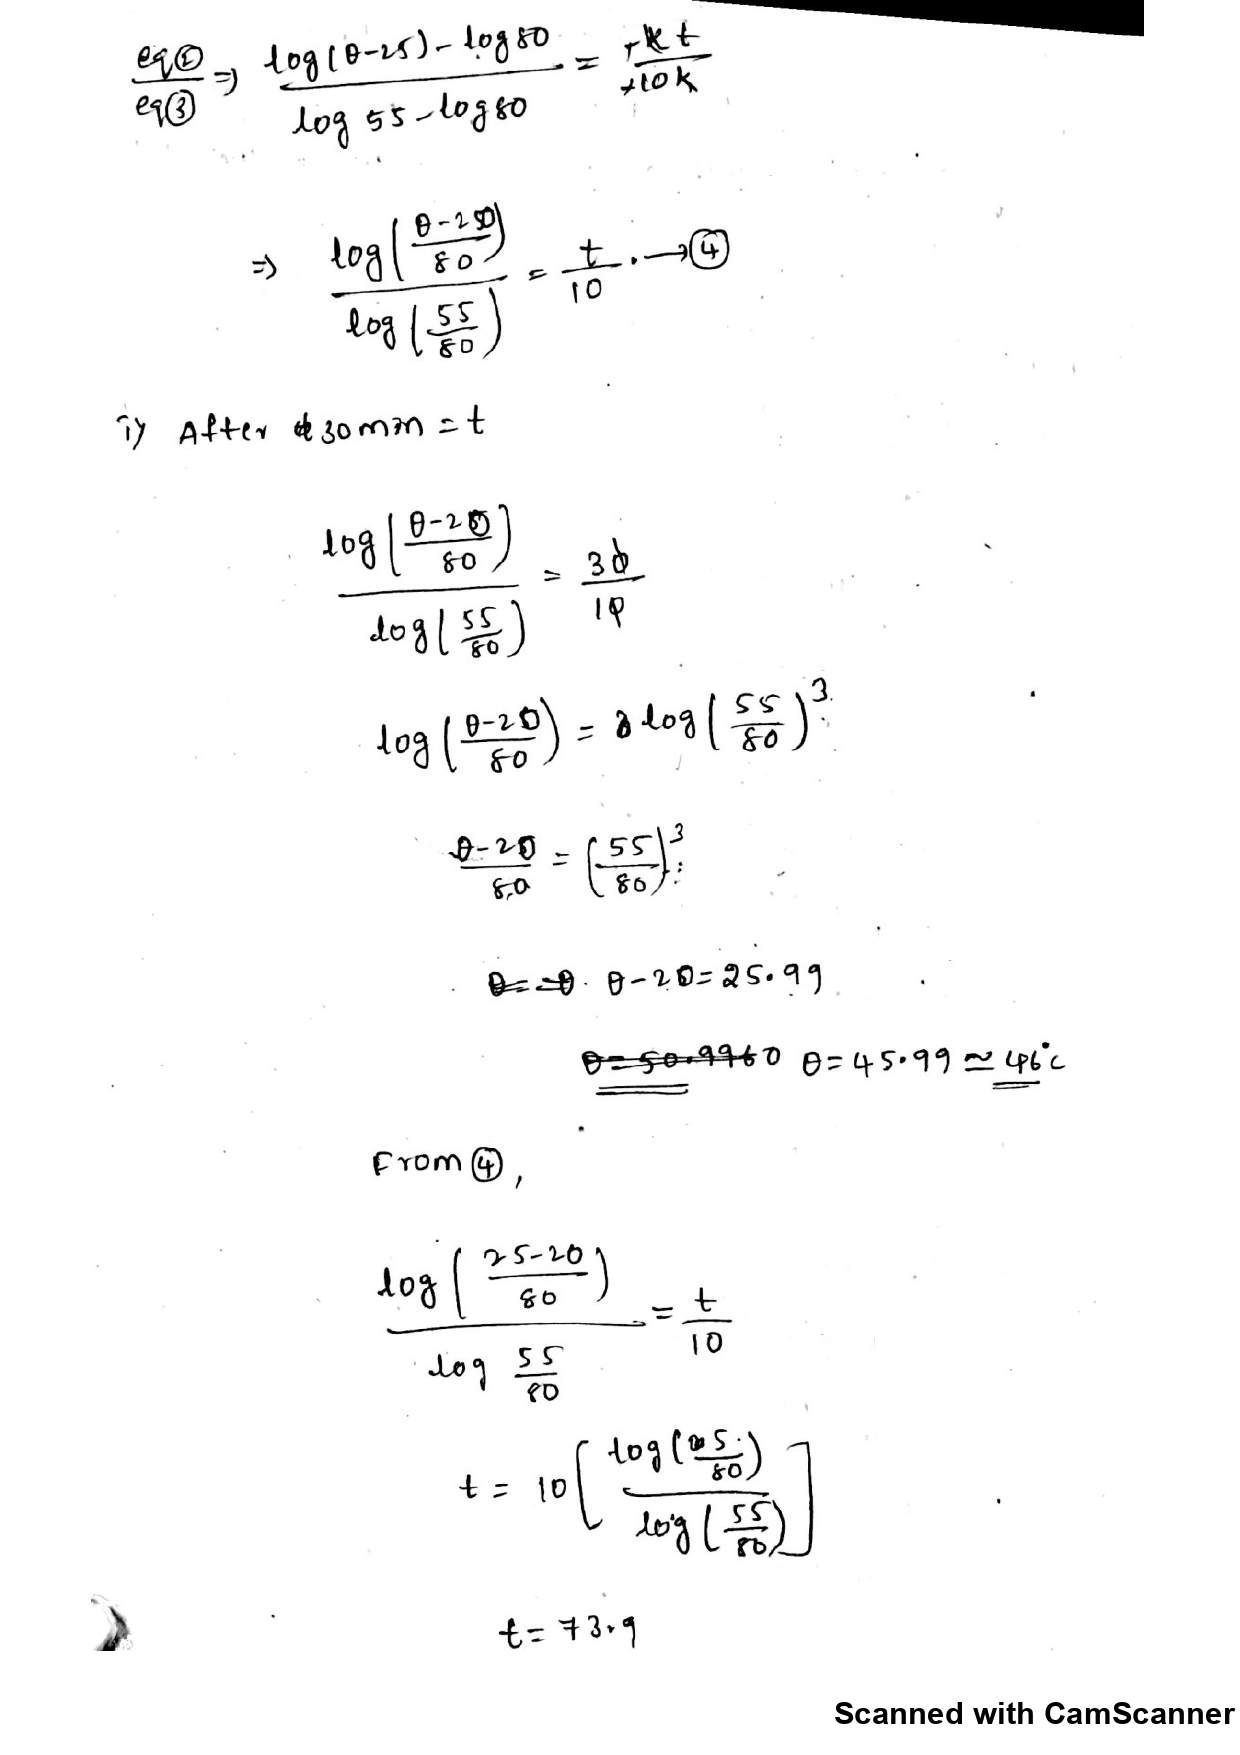 eq② / eq③ ⇒ (log(θ-25) - log 80) / (log 55 - log 80) = +kt / +10k
⇒ log((θ-20)/80) / log(55/80) = t/10 . → ④
i) After 30 min = t
log((θ-20)/80) / log(55/80) = 30/10
log((θ-20)/80) = 3 log(55/80)³
(θ-20)/80 = (55/80)³
θ = θ θ-20 = 25.99
θ = 50.9960 θ = 45.99 ≃ 46°c
From ④,
log((25-20)/80) / log 55/80 = t/10
t = 10[log(5/80) / log(55/80)]
t = 73.9
Scanned with CamScanner